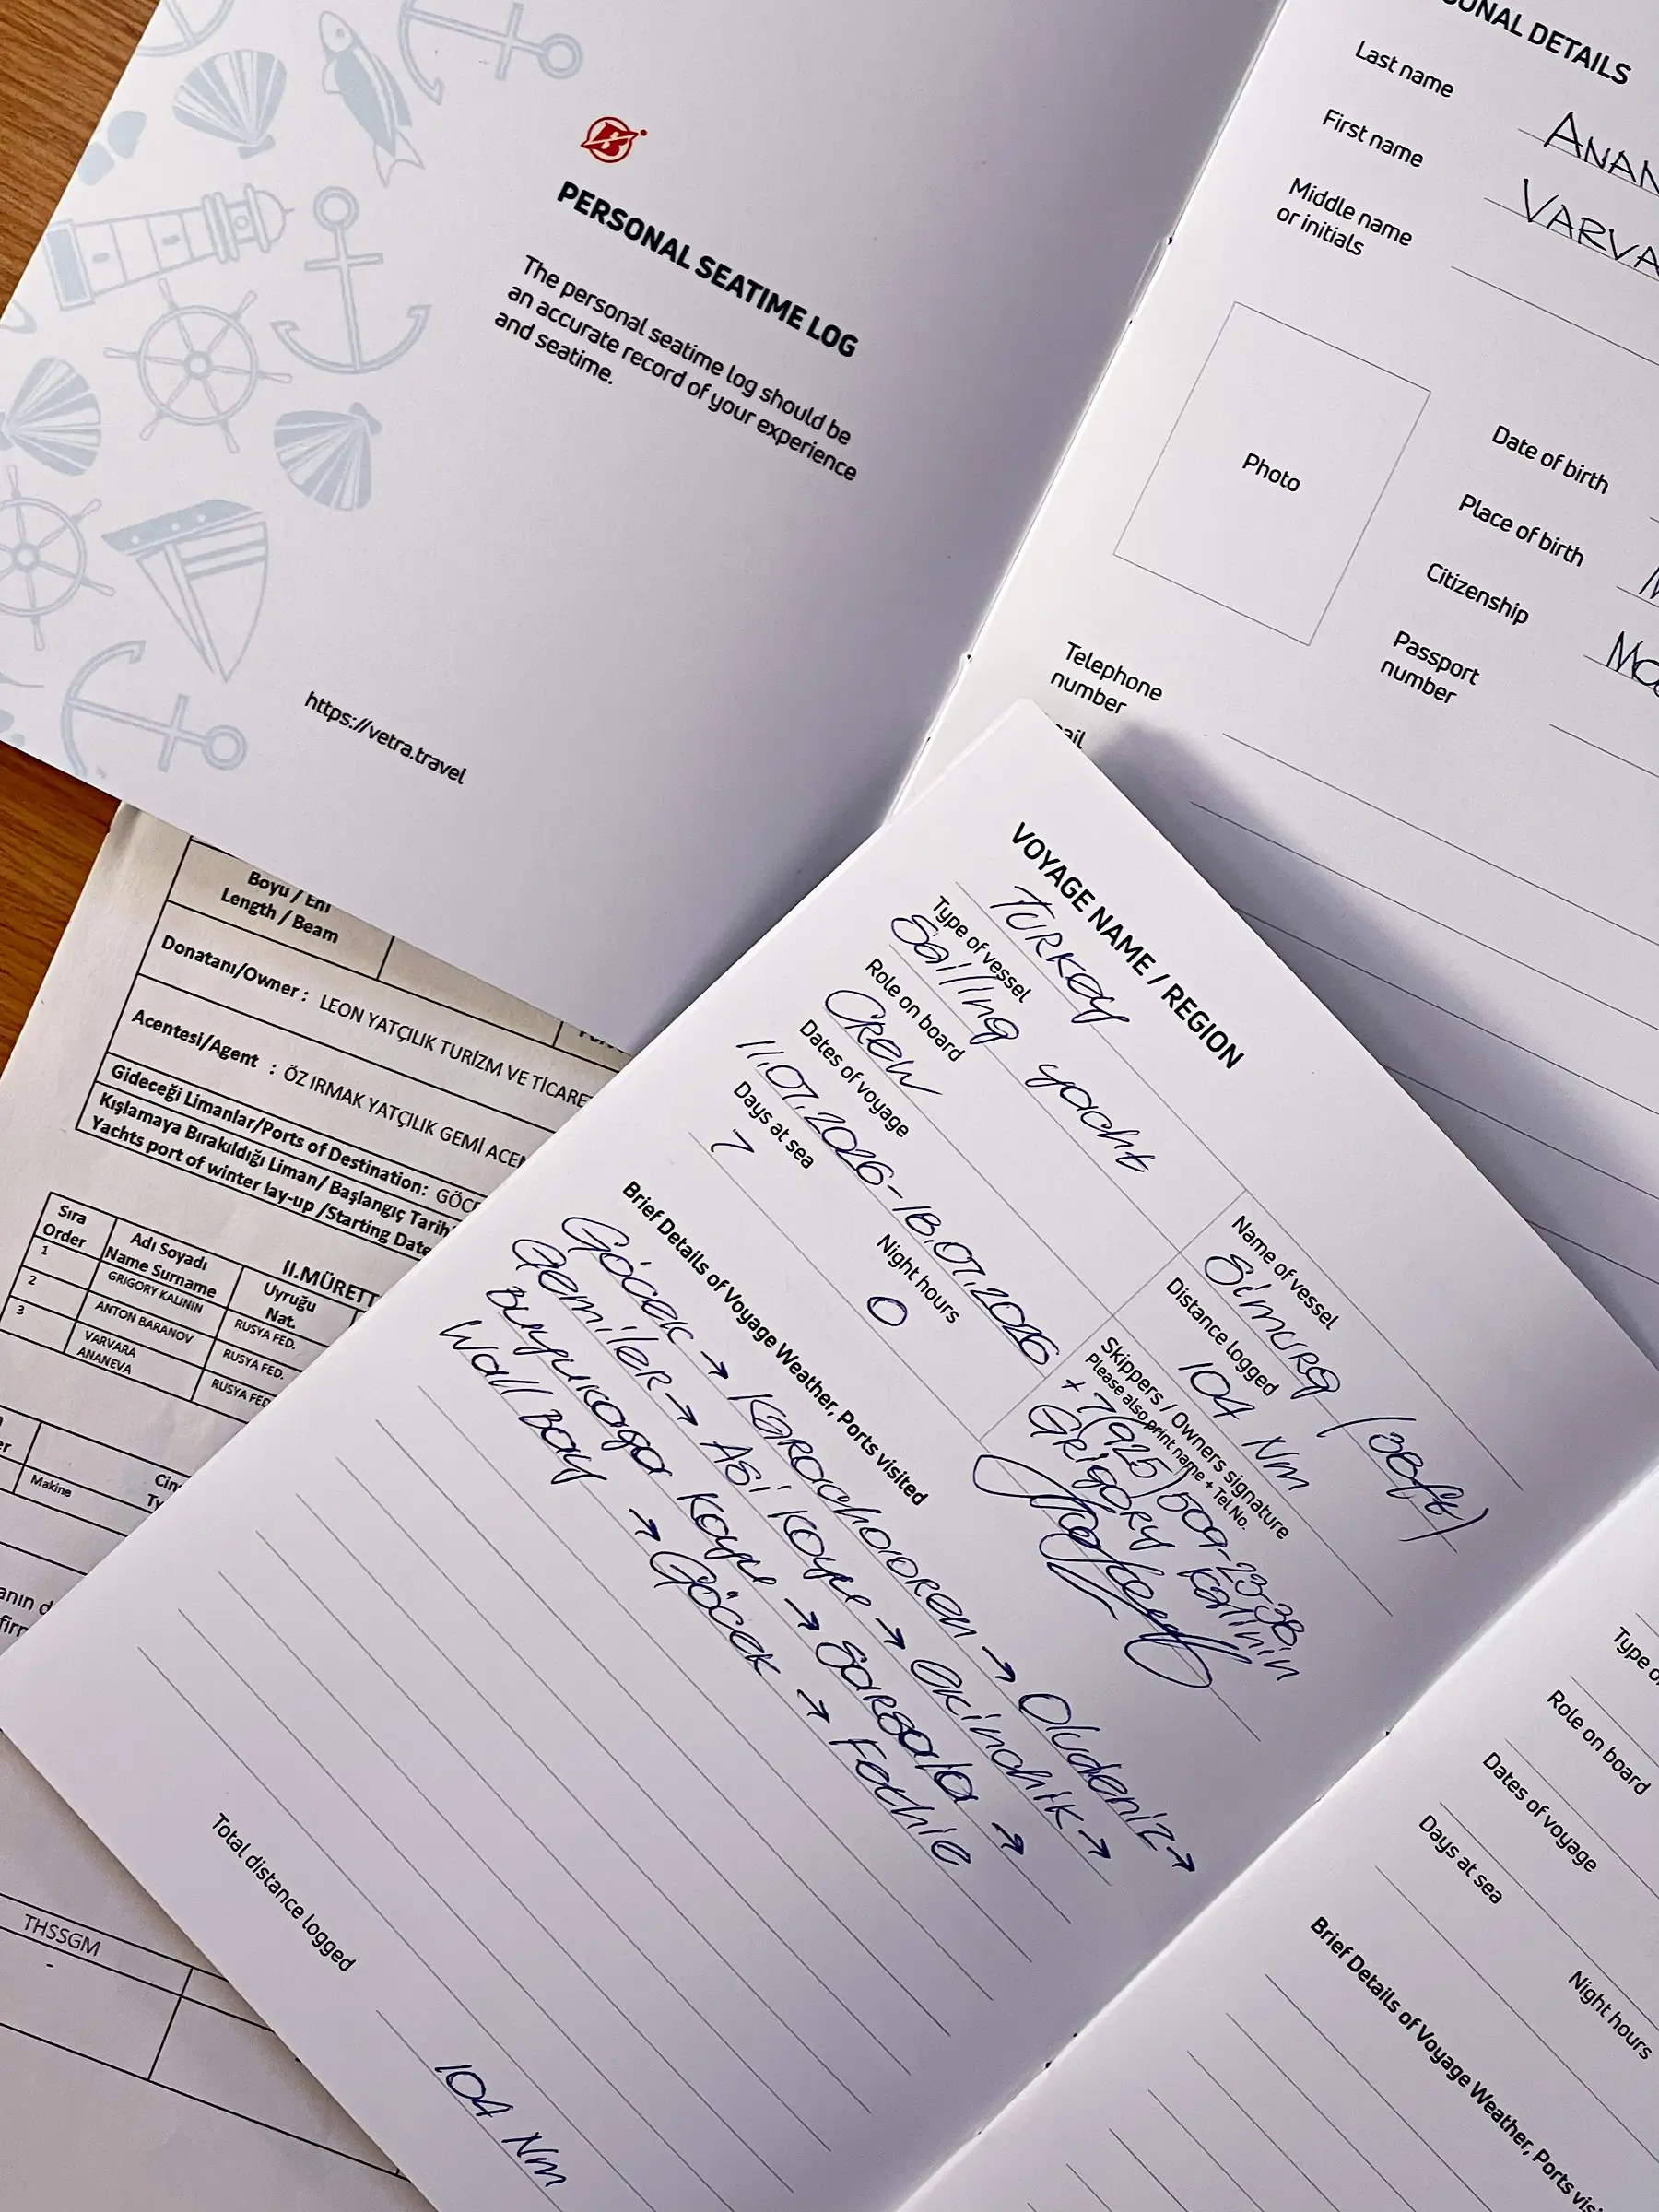 PERSONAL SEATIME LOG
The personal seatime log should be
an accurate record of your experience
and seatime.
https://vetra.travel
SONAL DETAILS
Last name
ANAN
First name
VARVA
Middle name
or initials
Photo
Date of birth
Place of birth
M
Citizenship
Mo
Passport
number
Telephone
number
ail
Boyu / Eni
Length / Beam
Donatanı/Owner : LEON YATÇILIK TURİZM VE TİCARE
Acentesi/Agent : ÖZ IRMAK YATÇILIK GEMİ ACEN
Gideceği Limanlar/Ports of Destination: GÖCE
Kışlamaya Bırakıldığı Liman/ Başlangıç Tarih
Yachts port of winter lay-up /Starting Date
II.MÜRETT
Sıra
Order
Adı Soyadı
Name Surname
Uyruğu
Nat.
1 GRIGORY KALININ RUSYA FED.
2 ANTON BARANOV RUSYA FED.
3 VARVARA
ANANEVA RUSYA FED
Makine
Cin
THSSGM
-
VOYAGE NAME / REGION
TURKey
Type of vessel
Sailing yacht
Name of vessel
Simurg (38ft)
Role on board
CReW
Distance logged
104 Nm
Dates of voyage
11.07.2026-18.07.2026
Skippers / Owners signature
Please also print name + Tel No.
+7(925)509-23-38,
GRigoRy Kalinin
Days at sea
7
Night hours
0
Brief Details of Voyage Weather, Ports visited
Göcek → KaRachoRen → Oludeniz →
Gemiler → Asi Koyu → ekinchik →
Buyukaga Koyu → SaRsala →
Wall Bay → Göcek → Fethie
Total distance logged
104 Nm
Type o
Role on board
Dates of voyage
Days at sea
Night hours
Brief Details of Voyage Weather, Ports visi